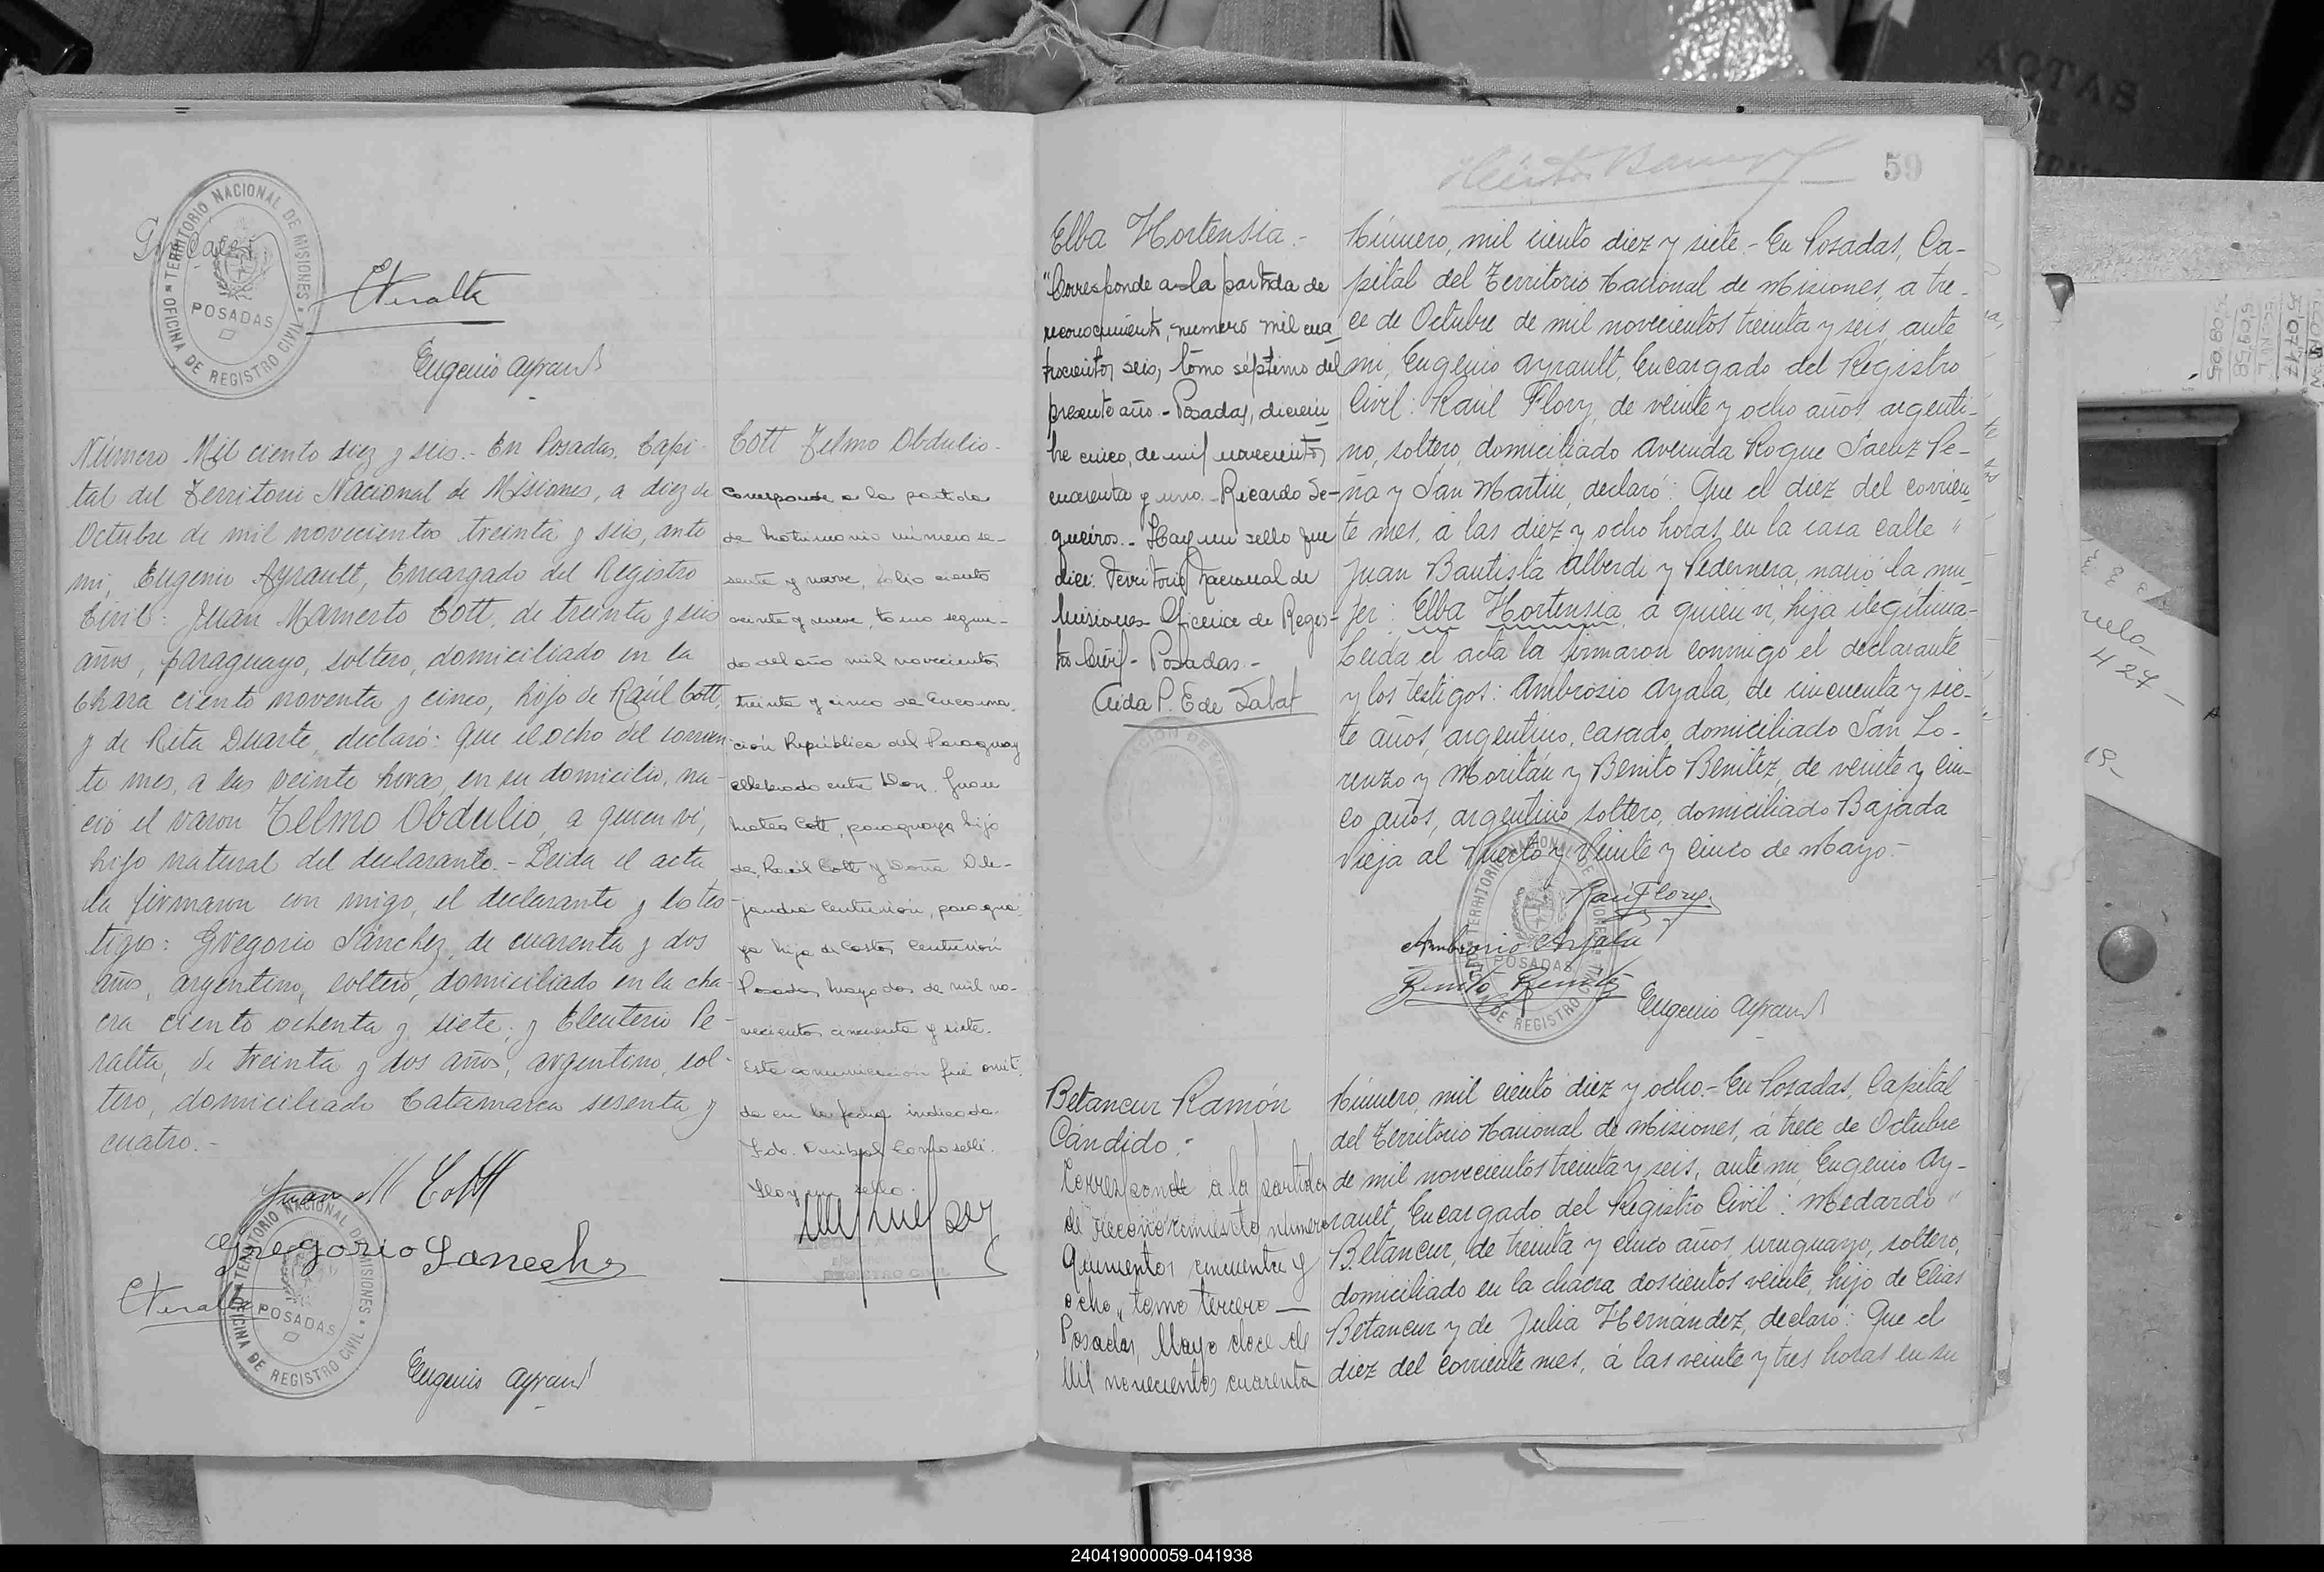 TERRITORIO NACIONAL DE MISIONES
POSADAS
OFICINA DE REGISTRO CIVIL
EPeralta
Eugenio Ayrault
Número Mil ciento diez y seis.- En Posadas, Capi-
tal del Territorio Nacional de Misiones, a diez de
Octubre de mil novecientos treinta y seis, ante
mi, Eugenio Ayrault, Encargado del Registro
Civil: Juan Mamerto Cott, de treinta y seis
años, paraguayo, soltero, domiciliado en la
chara ciento noventa y cinco, hijo de Raúl Cott,
y de Rita Duarte, declaró: Que el ocho del corrien-
te mes, a las veinte horas, en su domicilio, na-
ció el varon Telmo Obdulio, a quien vi,
hijo natural del declarante.- Leida el acta
la firmaron con migo, el declarante y los tes-
tigos: Gregorio Sánchez, de cuarenta y dos
años, argentino, soltero, domiciliado en la cha-
cra ciento ochenta y siete; y Eleuterio Pe-
ralta, de treinta y dos años, argentino, sol-
tero, domiciliado Catamarca sesenta y
cuatro.-
Juan M Cott
Gregorio Sanechs
EPeralta
TERRITORIO NACIONAL DE MISIONES
POSADAS
OFICINA DE REGISTRO CIVIL
Eugenio Ayrault
Cott Telmo Obdulio-
Corresponde a la partida
de matrimonio número se-
senta y nueve, folio ciento
veinte y nueve, tomo segun-
do del año mil novecientos
treinta y cinco de Encarna-
ción República del Paraguay
celebrado entre Don Juan
Mateo Cott, paraguayo hijo
de Raúl Cott y Doña Ale-
jandra Centurión, paragua-
ya hija de Castor Centurión
Posadas, Mayo dos de mil no-
vecientos cincuenta y siete.
Esta comunicación fué omiti-
da en la fecha indicada.
Fdo. Anibal
Hay un sello.
REGISTRO CIVIL
59
Elba Hortensia.-
"Corresponde a la partida de
reconocimiento, numero mil cua
trocientos seis, tomo séptimo del
presente año.- Posadas, diciem
bre cinco, de mil novecientos
cuarenta y uno.- Ricardo Se-
queiros.- Hay un sello que
dice: Territorio Nacional de
Misiones- Oficina de Regis-
tro Civil- Posadas.-
Aida P. E de Labat
Número, mil ciento diez y siete.- En Posadas, Ca-
pital del Territorio Nacional de Misiones, a tre-
ce de Octubre de mil novecientos treinta y seis, ante
mi, Eugenio Ayrault, Encargado del Registro
Civil: Raúl Flory, de veinte y ocho años, argenti-
no, soltero, domiciliado Avenida Roque Saenz Pe-
ña y San Martin, declaró: Que el diez del corrien-
te mes, a las diez y ocho horas, en la casa calle "
Juan Bautista Alberdi y Pedernera, nació la mu-
jer: Elba Hortensia, a quien vi, hija ilegitima-
Leida el acta la firmaron conmigo el declarante
y los testigos: Ambrosio Ayala, de cincuenta y sie-
te años, argentino, casado, domiciliado San Lo-
renzo y Moritán y Benito Benitez, de veinte y cin-
co años, argentino, soltero, domiciliado Bajada
Vieja al Puerto y Veinte y cinco de Mayo.-
Raúl Flory
Ambrosio Ayala
Benito Benitez
POSADAS
Eugenio Ayrault
Betancur Ramón
Cándido:
Corresponde a la partida
de reconocimiento numero
Quinientos cincuenta y
ocho, tomo tercero—
Posadas, Mayo doce de
Mil novecientos cuarenta
Número, mil ciento diez y ocho.- En Posadas, Capital
del Territorio Nacional de Misiones, á trece de Octubre
de mil novecientos treinta y seis, ante mi, Eugenio Ay-
rault, Encargado del Registro Civil: Medardo "
Betancur, de treinta y cinco años, uruguayo, soltero,
domiciliado en la chacra doscientos veinte, hijo de Elias
Betancur y de Julia Hernández, declaró: Que el
diez del corriente mes, á las veinte y tres horas en su
ACTAS
424-
19-
240419000059-041938